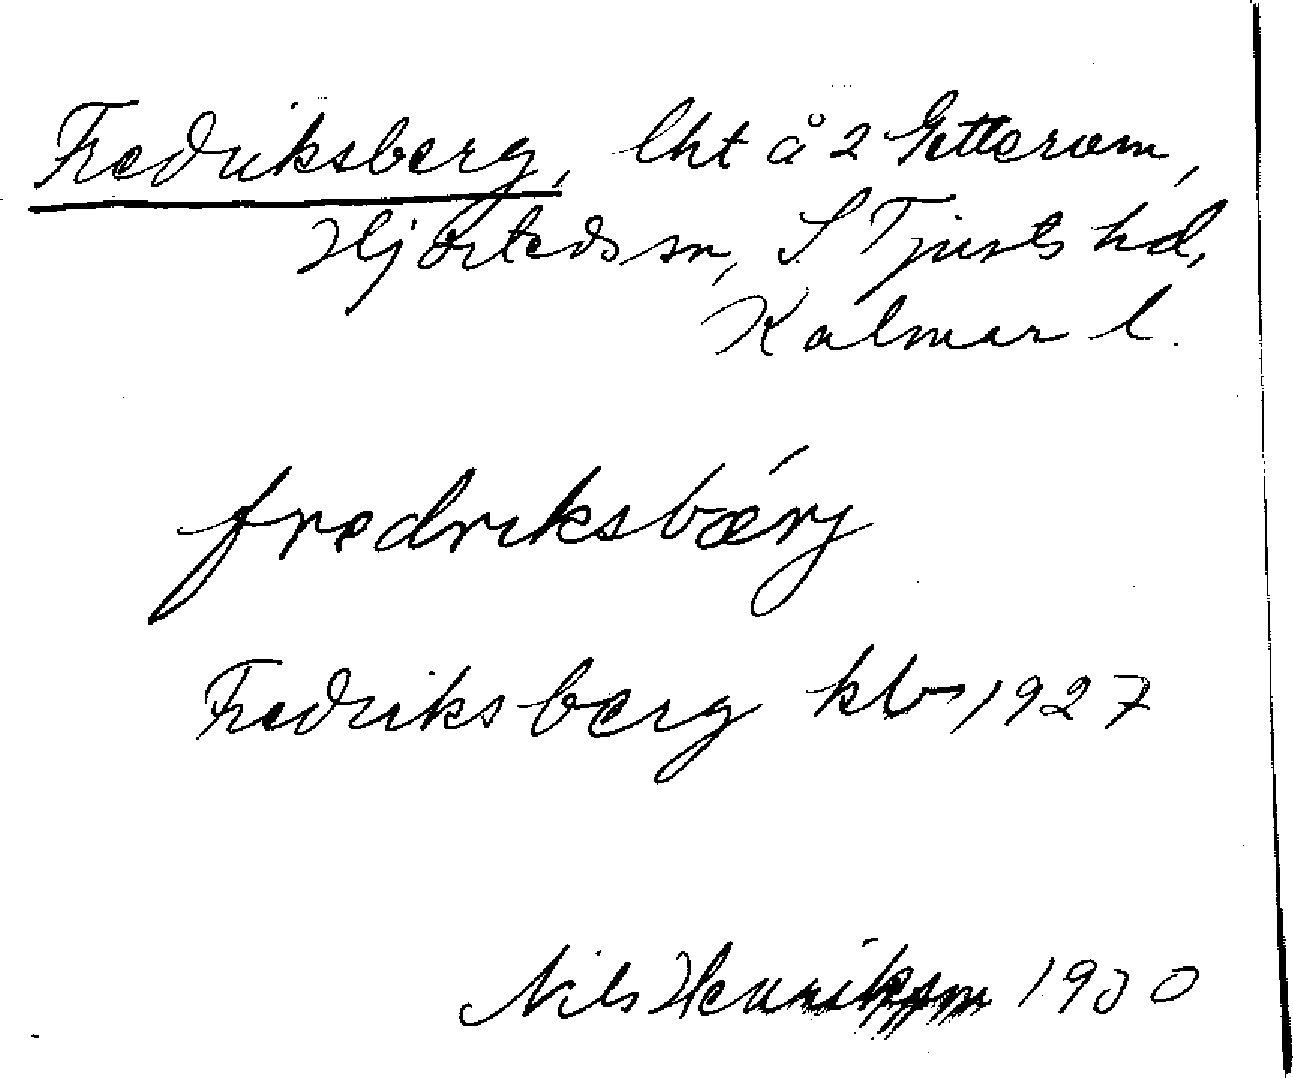 Fredriksberg, lht å 2 Getterum,
Hjorteds sn, S Tjusts hd,
Kalmar l.
fredriksbærj
Fredriksberg kb 1927
Nils Henriksson 1930